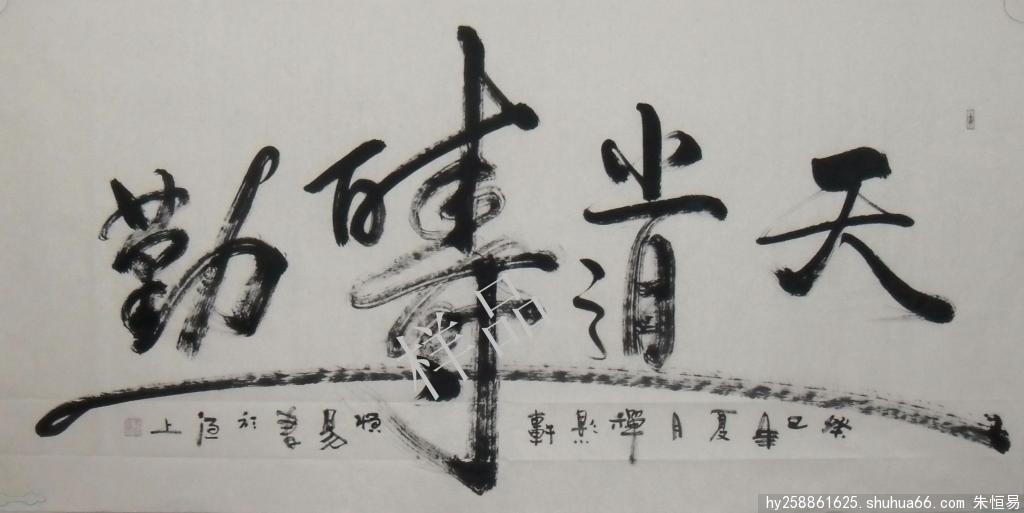 天道酬勤
癸巳年夏月禪影軒
恒易書於上
样品
hy258861625.shuhua66.com 朱恒易